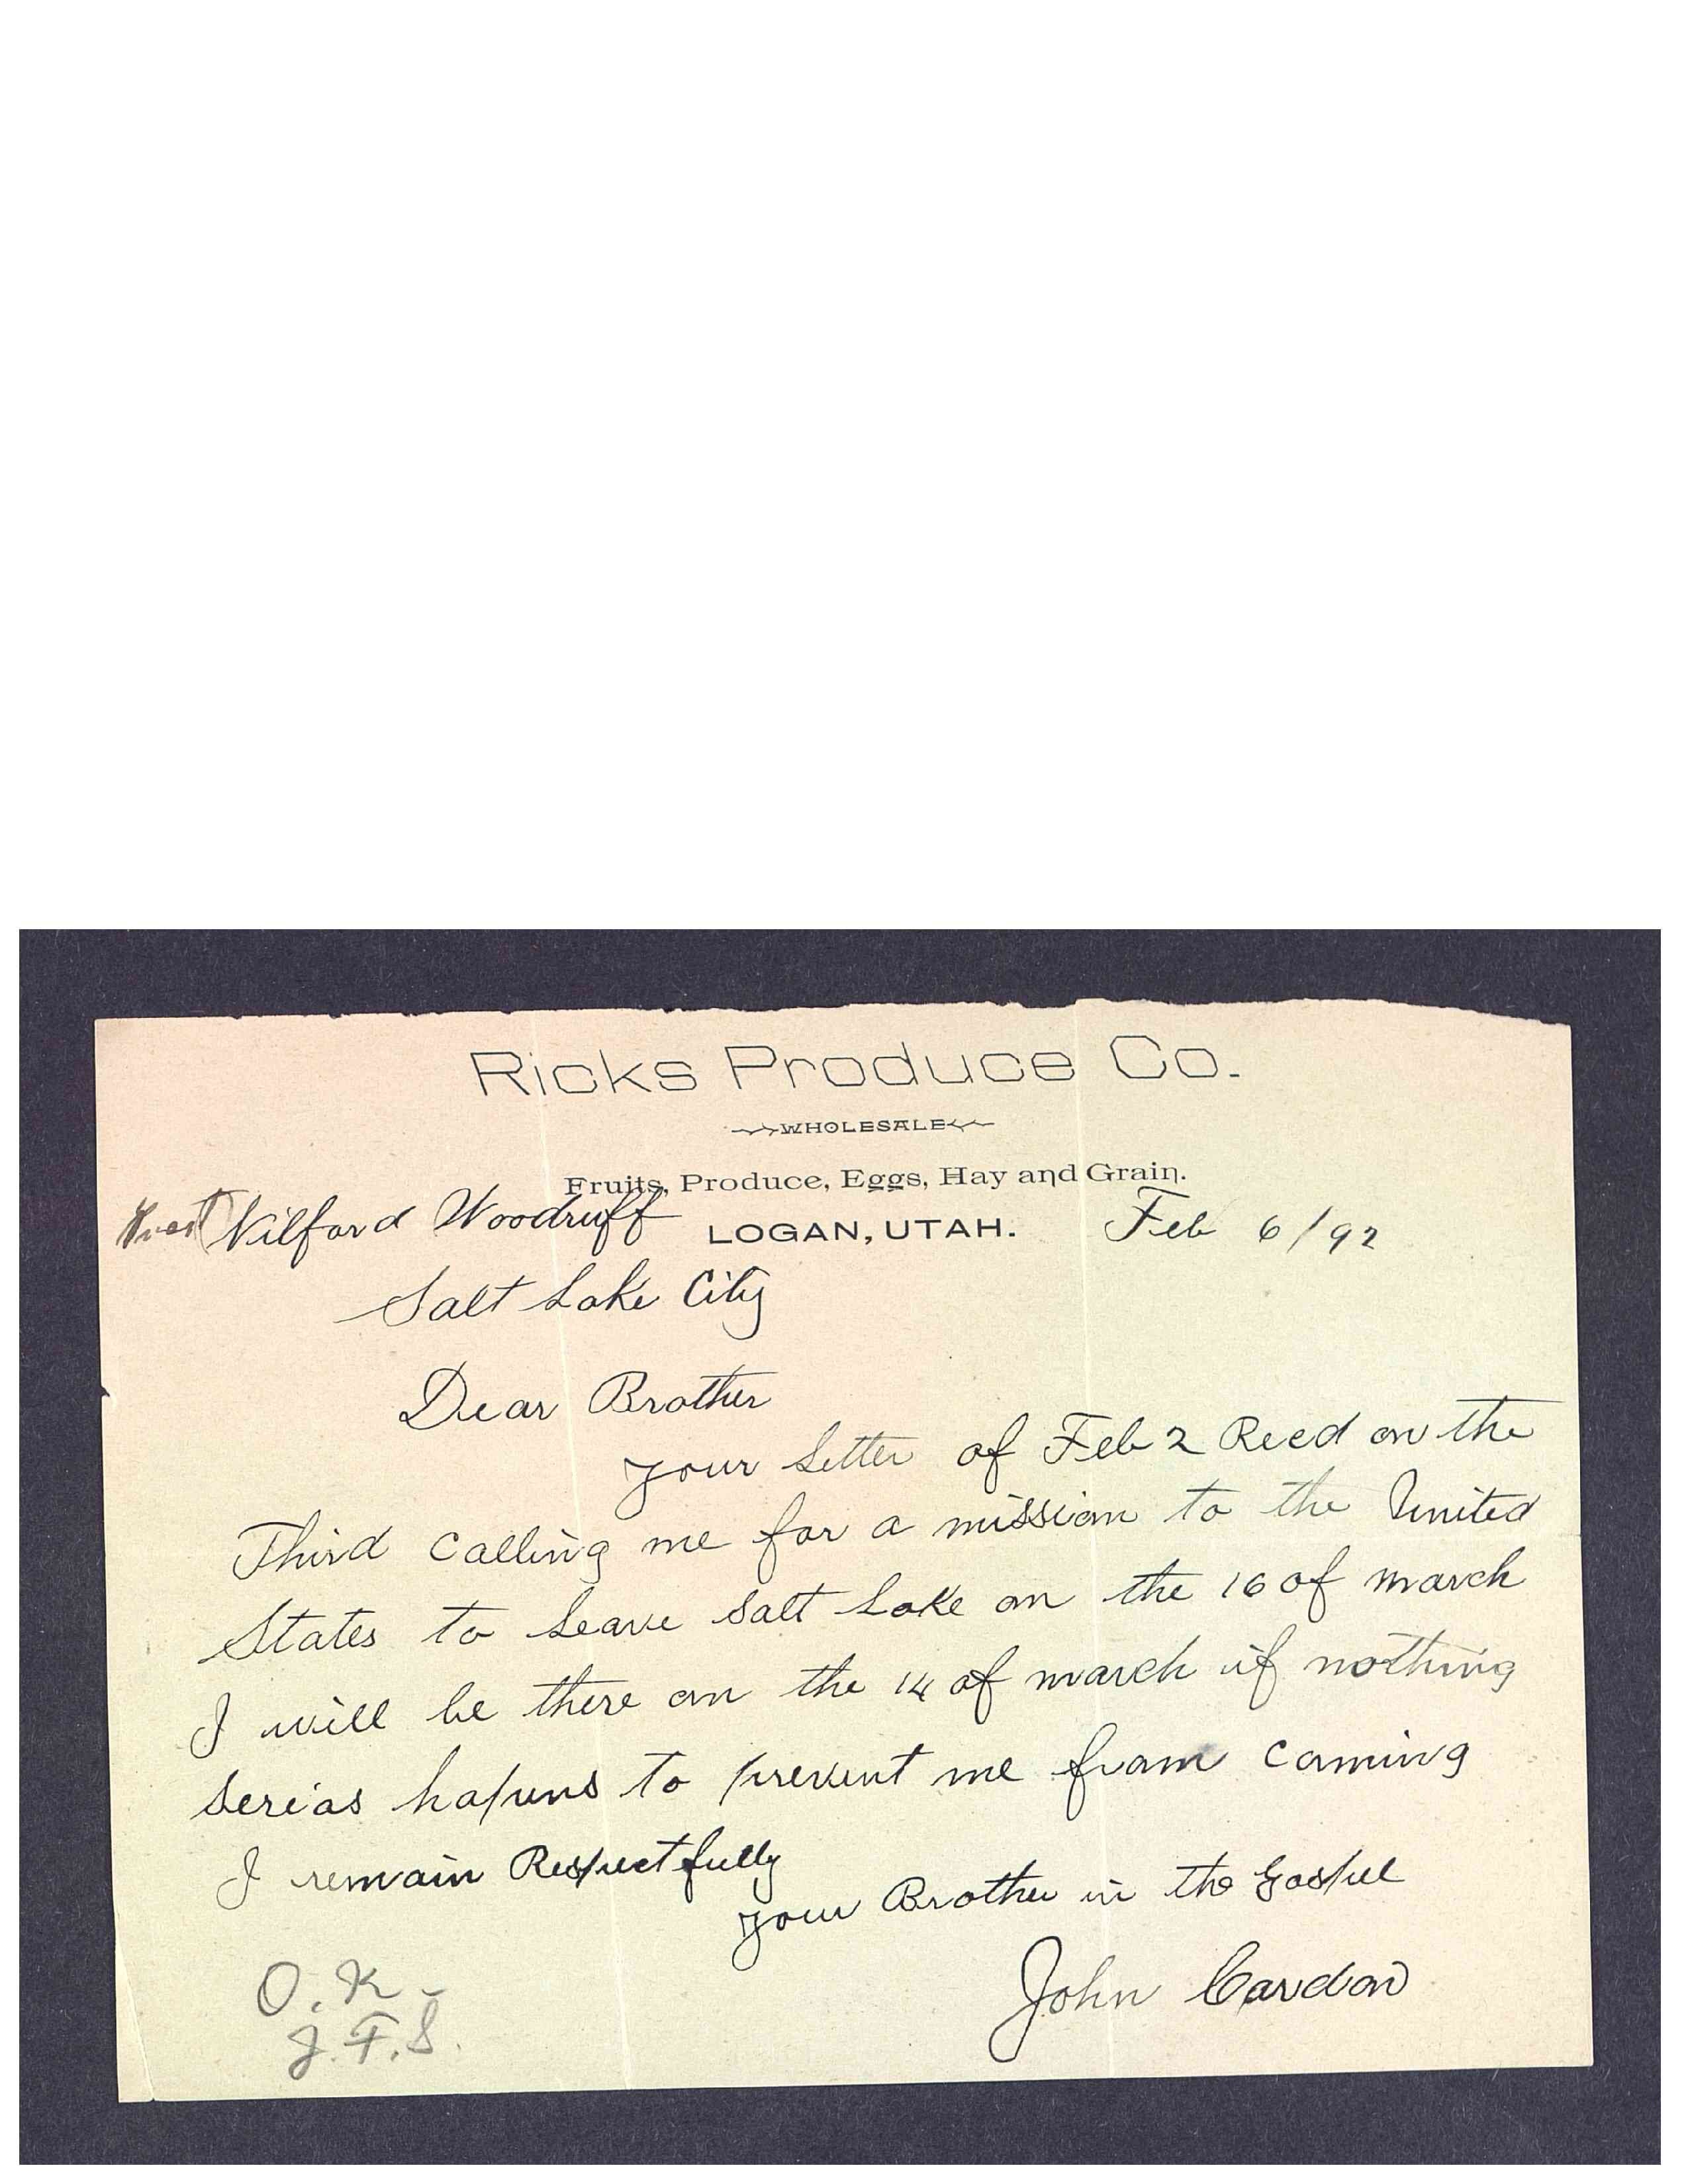 Ricks Produce Co.
WHOLESALE
Fruits, Produce, Eggs, Hay and Grain.
LOGAN, UTAH. Feb 6/92
Prest Wilford Woodruff
Salt Lake City
Dear Brother
your Letter of Feb 2 Recd on the
Third calling me for a mission to the United
States to Leave Salt Lake on the 16 of march
I will be there on the 14 of march if nothing
Serias hapens to prevent me from coming
I remain Respectfully
your Brother in the Gospel
John Cardon
O.K.
J.F.S.